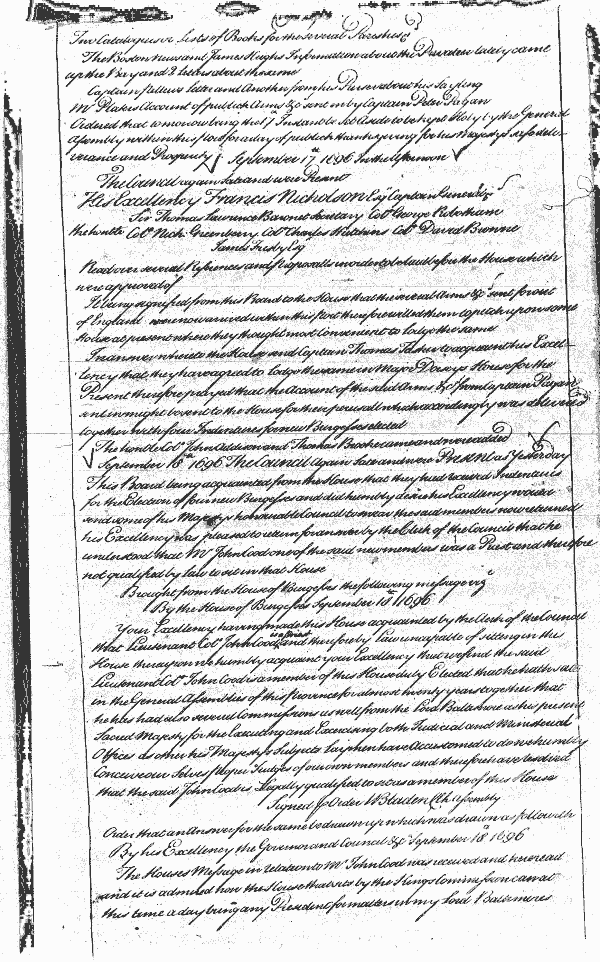 Two Catalogues or Lists of Books for the several Parishes
The Boston News and James Heighs Information about the Privateer lately came
up the Bay and 2 Letters about the same
Captain Letter and Another from his Purser about his Sayling
Mr Platers Account of publick Arms &c sent in by Captain Peter Pagan
Ordered that to morrow being the 17th Instant be Set Aside to be kept Holy by the General
Assembly within this Port for a day of publick thanksgiving for his Majestys safe deli-
verance and Prosperity September 17th 1696 In the Afternoon
The Council again Sate and were Present
His Excellency Francis Nicholson Esqr Captain General &c
Sir Thomas Lawrence Baronet Secretary Colo George Robotham
the honble Colo Nich: Greenberry Colo Charles Hutchins Colo David Browne
James Frisby Esqr
Read over several References and Proposalls in order to be laid before the House which
were approved of
It being signified from this Board to the House that the several Arms &c sent for out
of England were now arrived within this Port therefore willed them to pitch upon some
House at present where they thought most Convenient to lodge the same
In answer whereto the House send Captain Thomas Tasker to acquaint his Excel-
lency that they have agreed to Lodge the same in Major Dorseys House for the
Present therefore prayed that the Account of the said Arms &c from Captain Pagan
sent in might be sent to the House for there perusall which accordingly was delivered
together with four Indentures for new Burgesses elected
The honble Colo John Addison and Thomas Brooke came and were added
September 18th 1696 The Council Again Sate and were Present as Yesterday
This Board being acquainted from the House that they had received Indentures
for the Election of four new Burgesses and did humbly desire his Excellency would
send some of his Majestys honourable Council to swear the said members now returned
his Excellency was pleased to return for answer by the Clerk of the Council that he
understood that Mr John Cood one of the said new members was a Priest and therefore
not qualified by law to sit in that House
Brought from the House of Burgesses the following message viz
By the House of Burgesses September 18th 1696
Your Excellency having made this House acquainted by the Clerk of the Council
that Lieutenant Colo John Cood is a priest and thereby by Law uncapable of sitting in the
House thereupon we humbly acquaint your Excellency that we find the said
Lieutenant Colo John Cood is a member of this House duly Elected that he hath sate
in the General Assemblies of this Province for almost twenty years together that
he has had also several Commissions as well from the Lord Baltemore as his present
Sacred Majesty for the Executing and Exercising both Judicial and Ministerial
Offices as other his Majestys Subjects Laymen have Accustomed to do we humbly
Conceive our Selves proper Judges of our own members and therefore have resolved
that the said John Cood is Legally qualified to sit as a member of this House
Signed p Order W Bladen Clk Assembly
Order that an Answer for the same be drawn up which was drawn as followeth
By his Excellency the Governor and Council &c September 18th 1696
The Houses Message in relation to Mr John Cood was received and here read
and it is admired how the House that sits by the Kings Commission can at
this time a day bring any President for matters in my Lord Baltimores